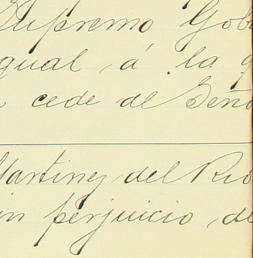 Supremo Gob
gual, á la q
cede al Seño
Martinez del Rio
in perjuicio, de